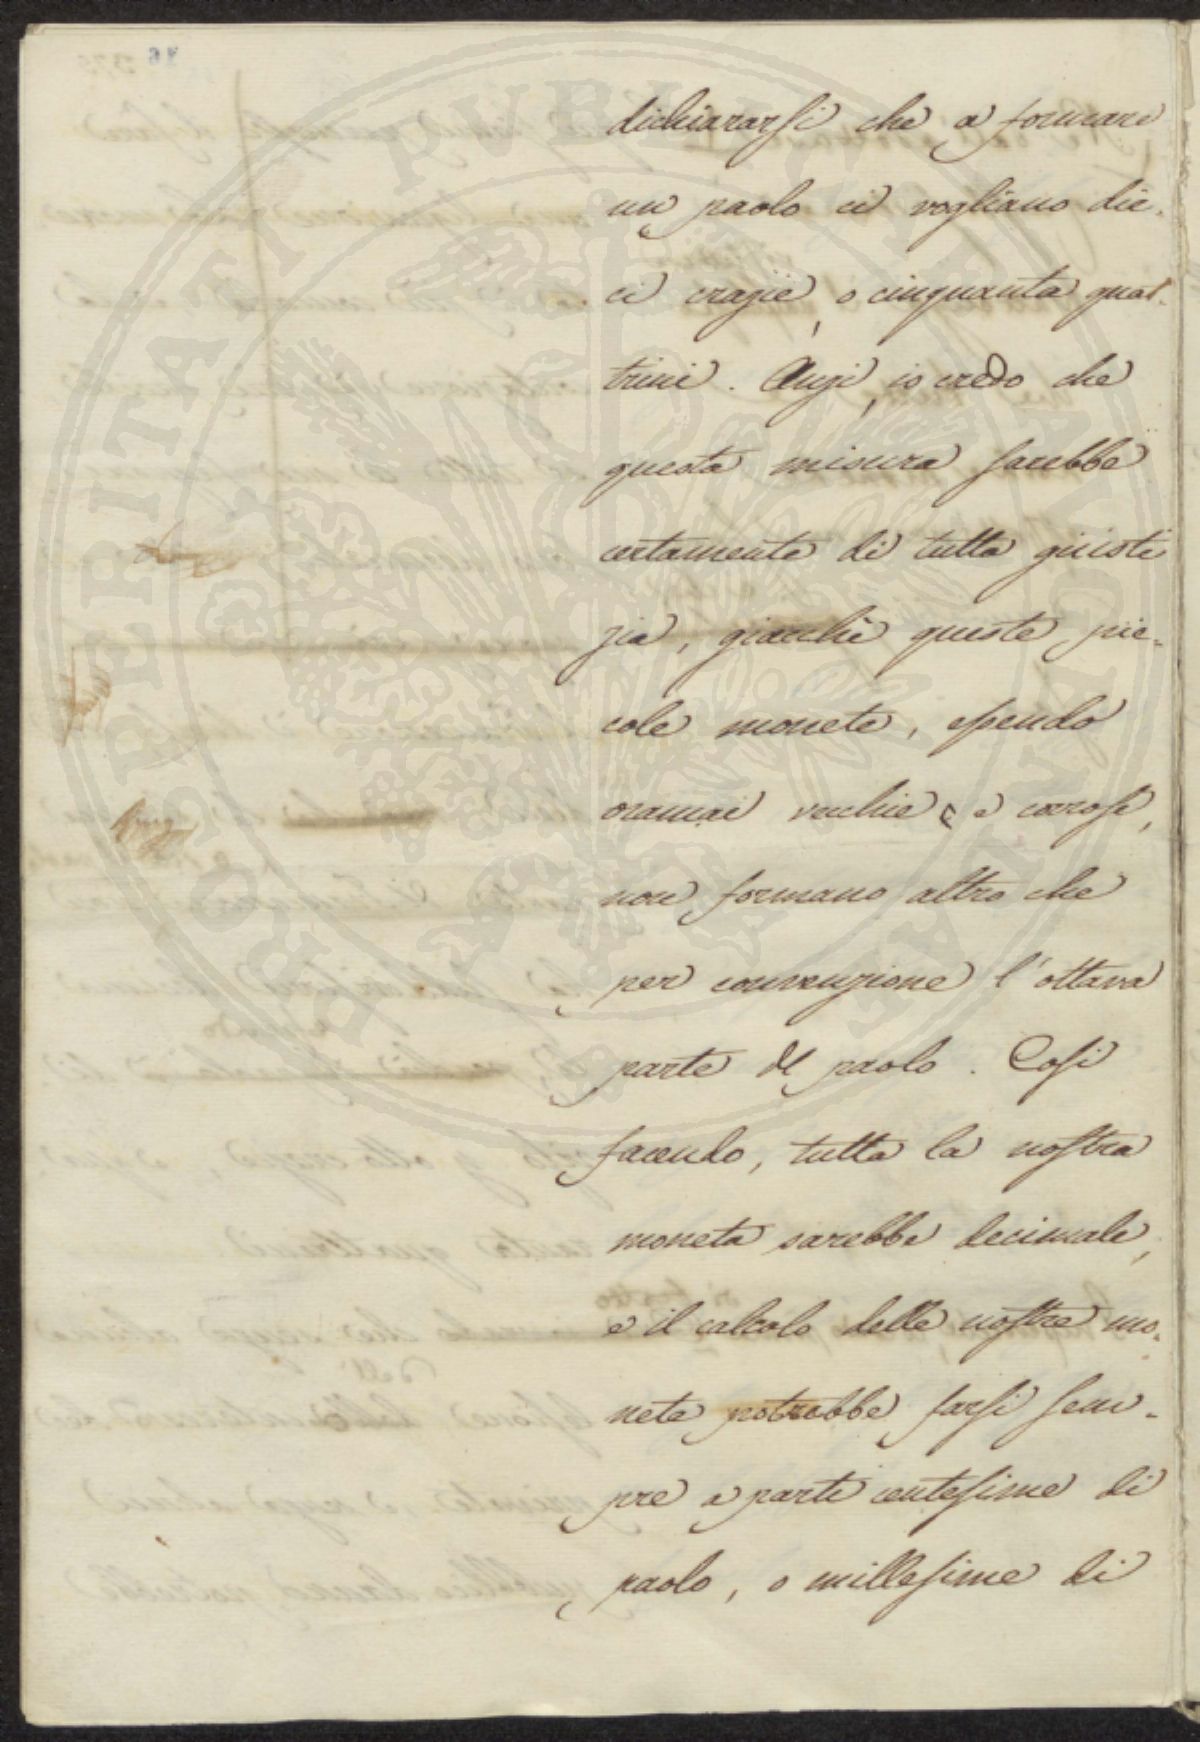 dichiararsi che a formare
un paolo ci vogliano die-
ci crazie, o cinquanta quat-
trini. Anzi, io credo che
questa misura sarebbe
certamente di tutta giusti
zia, giacchè queste pic-
cole monete, essendo
oramai vecchie e corrose,
non formano altro che
per convenzione l'ottava
parte del paolo. Così
facendo, tutta la nostra
moneta sarebbe decimale,
e il calcolo delle nostre mo-
nete potrebbe farsi sem-
pre a parti centesime di
paolo, o millesime di
PROSPERITATI PUBLICAE AUGENDAE